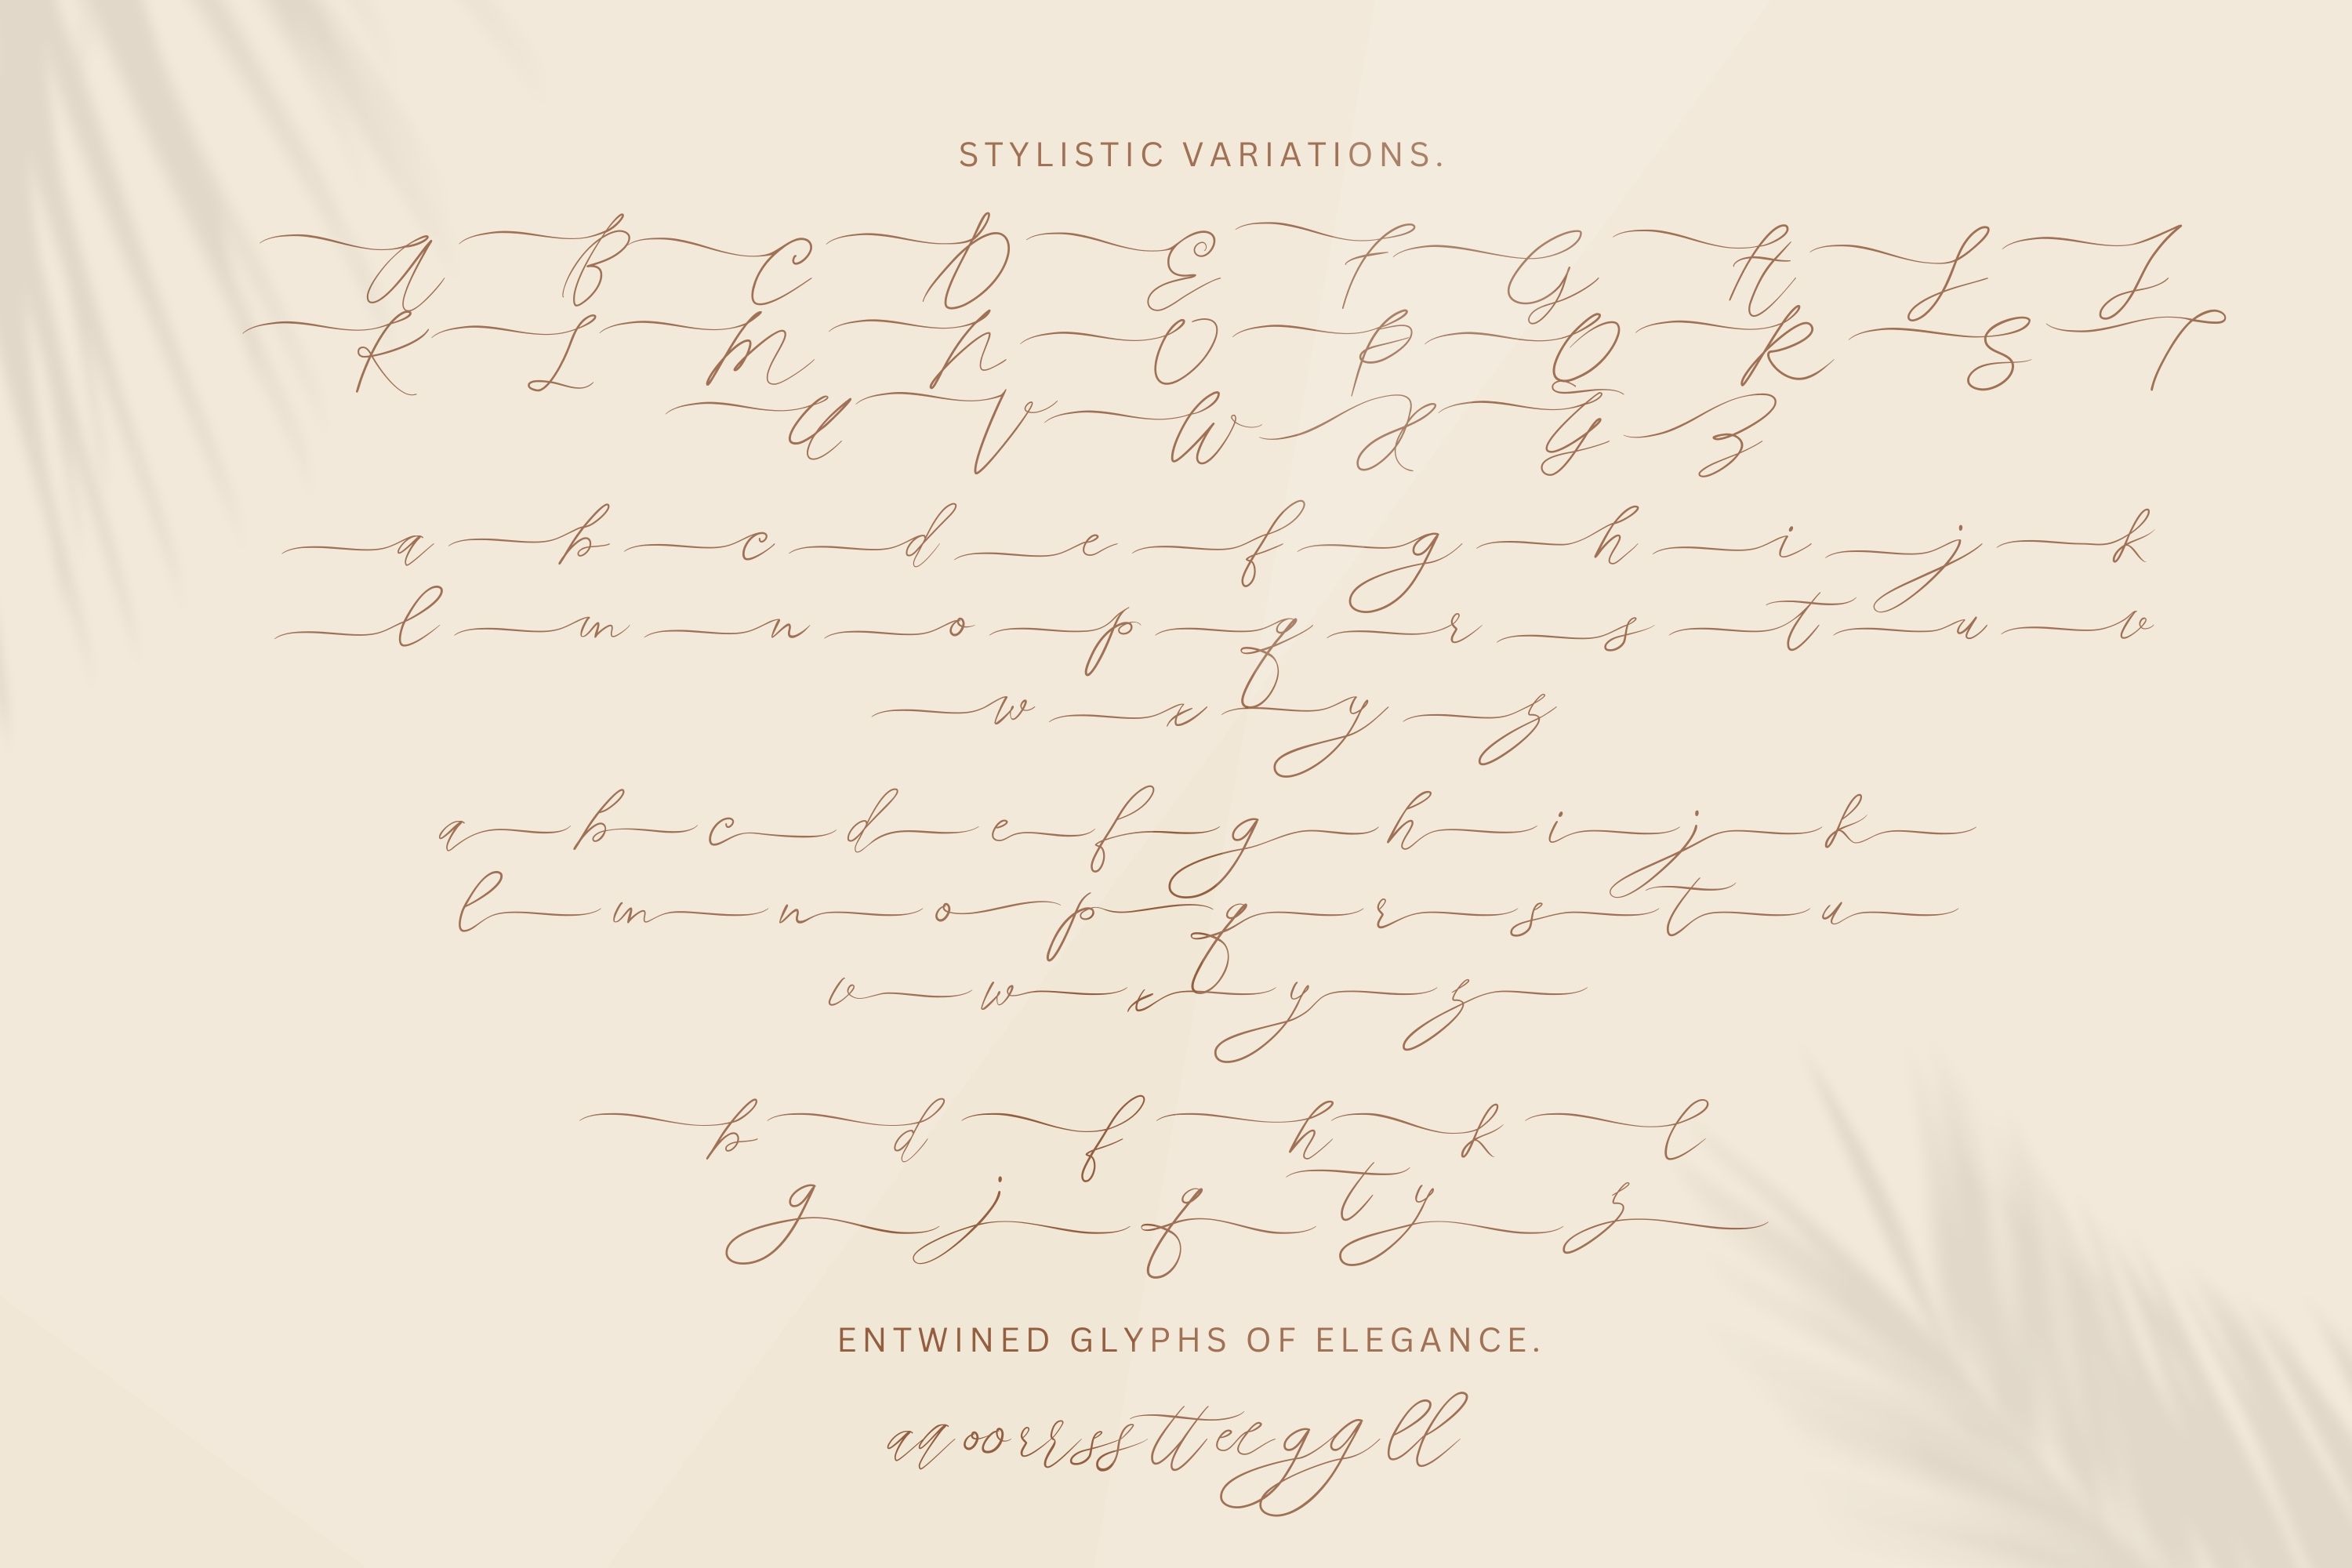 STYLISTIC VARIATIONS.
A B C D E F G H I J
K L M N O P Q R S T
U V W X Y Z
a b c d e f g h i j k
l m n o p q r s t u v
w x y z
a b c d e f g h i j k
l m n o p q r s t u
v w x y z
b d f h k l
g j q t y z
ENTWINED GLYPHS OF ELEGANCE.
aa oo rr ss tt ee gg ll